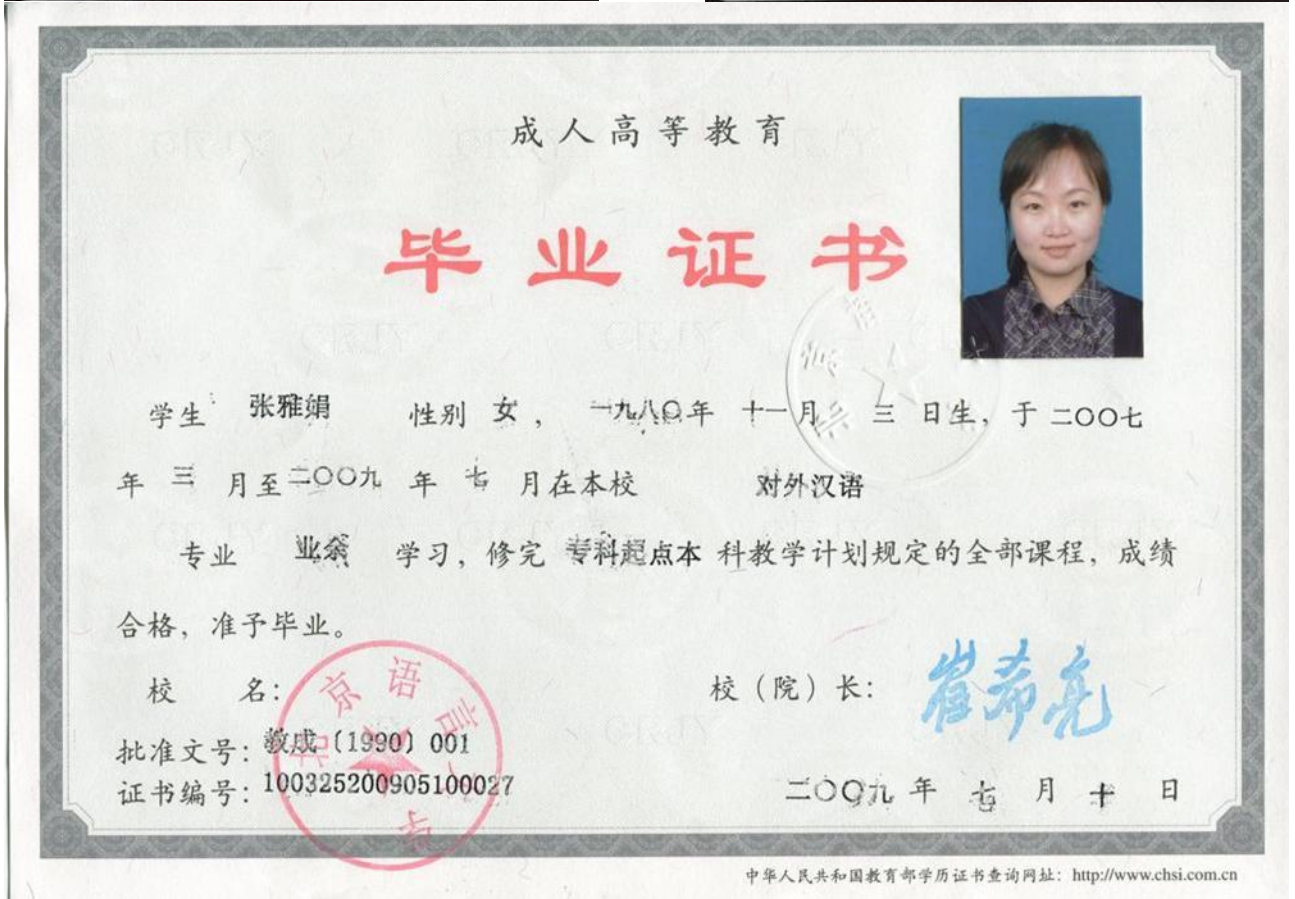 成人高等教育
毕业证书
学生 张雅娟 性别 女, 一九八〇年 十一月 三 日生, 于 二〇〇七
年 三 月至 二〇〇九 年 七 月在本校 对外汉语
专业 业余 学习, 修完 专科起点本 科教学计划规定的全部课程, 成绩
合格, 准予毕业。
校 名: 北京语言大学
校（院）长: 崔希亮
批准文号: 教成〔1990〕001
证书编号: 100325200905100027
二〇〇九 年 七 月 十 日
中华人民共和国教育部学历证书查询网址: http://www.chsi.com.cn